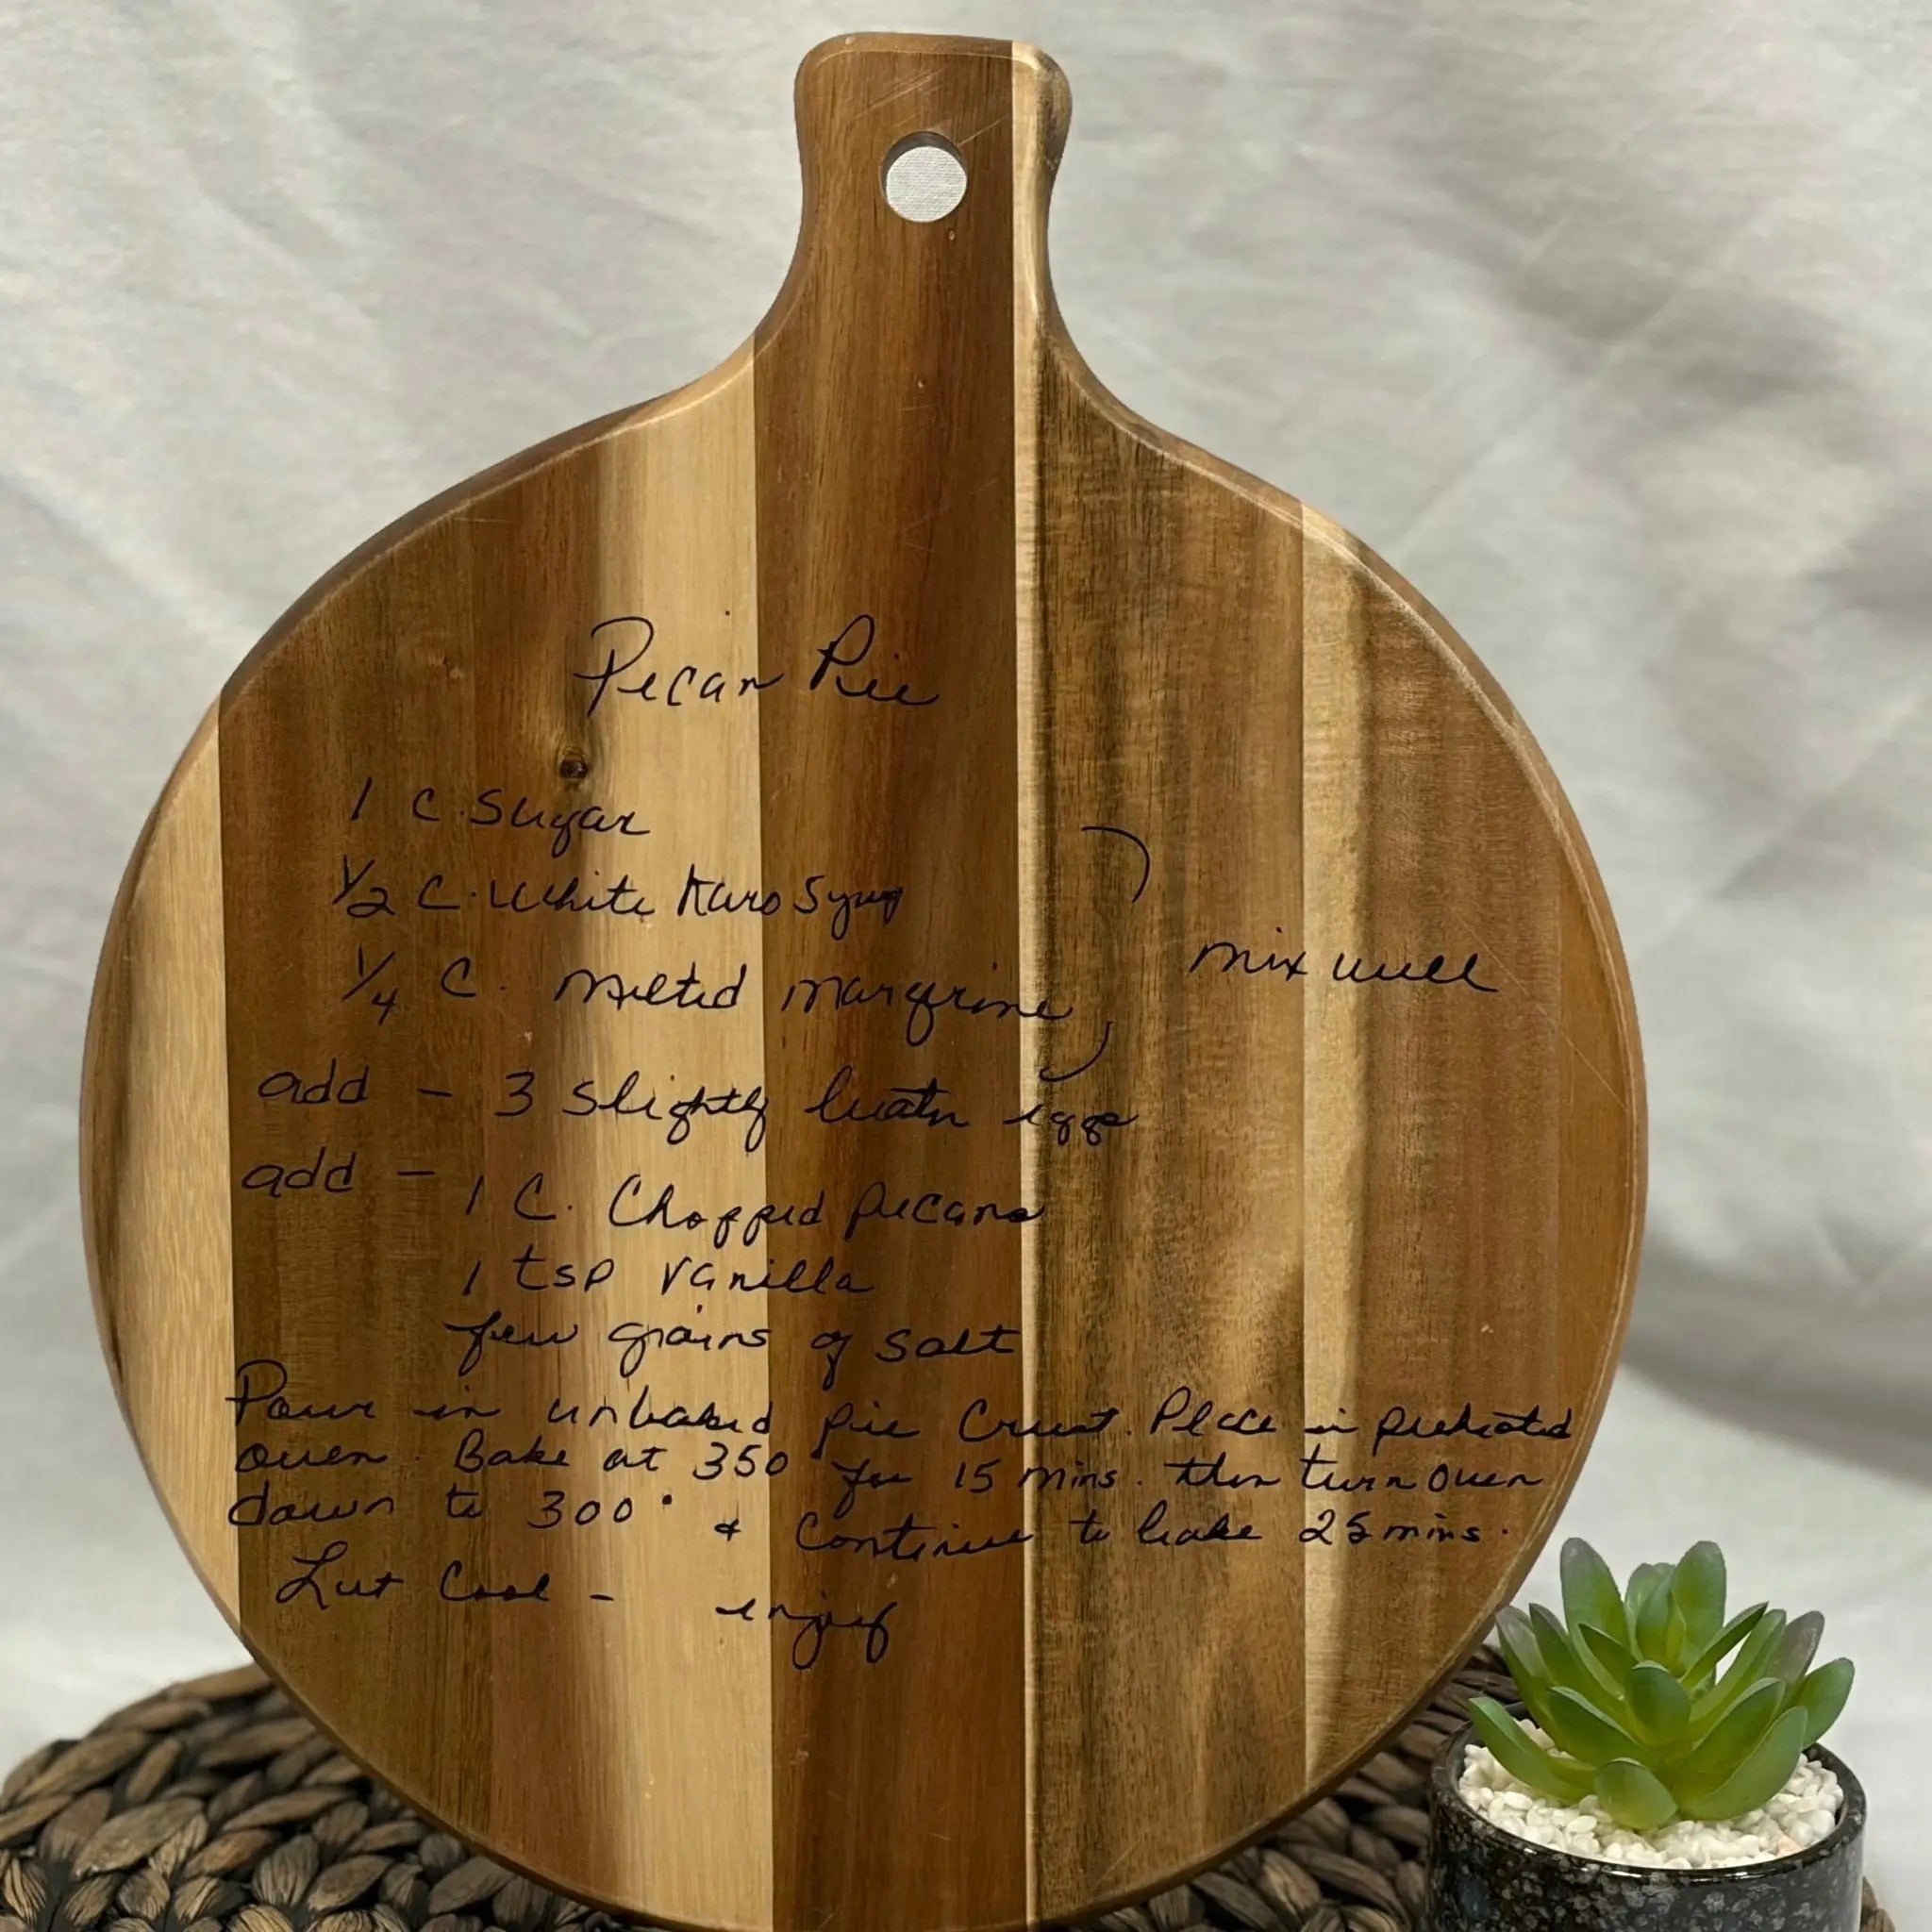 Pecan Pie
1 C. Sugar
1/2 C. White Karo Syrup
1/4 C. melted margerine
mix well
add - 3 slightly beatn eggs
add - 1 C. Chopped pecans
1 tsp vanilla
few grains of salt
Pour in unbaked pie Crust. Place in preheated
oven. Bake at 350 for 15 mins. then turn oven
down to 300° & Continue to bake 25 mins.
Let Cool - enjoy